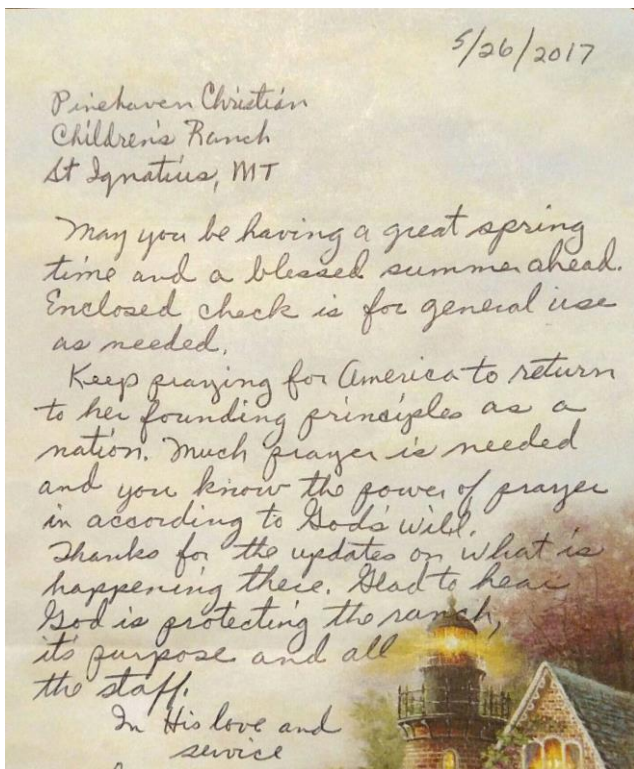 5/26/2017
Pinehaven Christian
Children's Ranch
St Ignatius, MT
May you be having a great spring
time and a blessed summer ahead.
Enclosed check is for general use
as needed.
Keep praying for America to return
to her founding principles as a
nation. Much prayer is needed
and you know the power of prayer
in according to God's will.
Thanks for the updates on what is
happening there. Glad to hear
God is protecting the ranch,
it's purpose and all
the staff.
In His love and
service